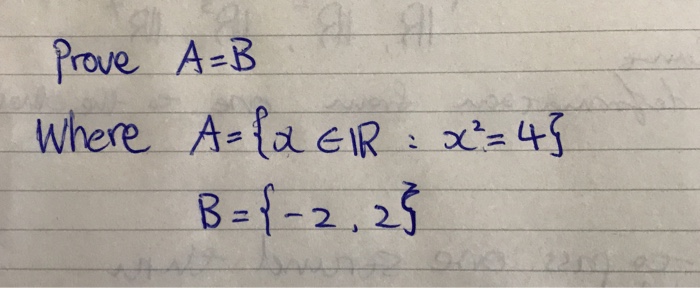 Prove A=B
Where A={x ∈ ℝ : x²=4}
B={-2, 2}